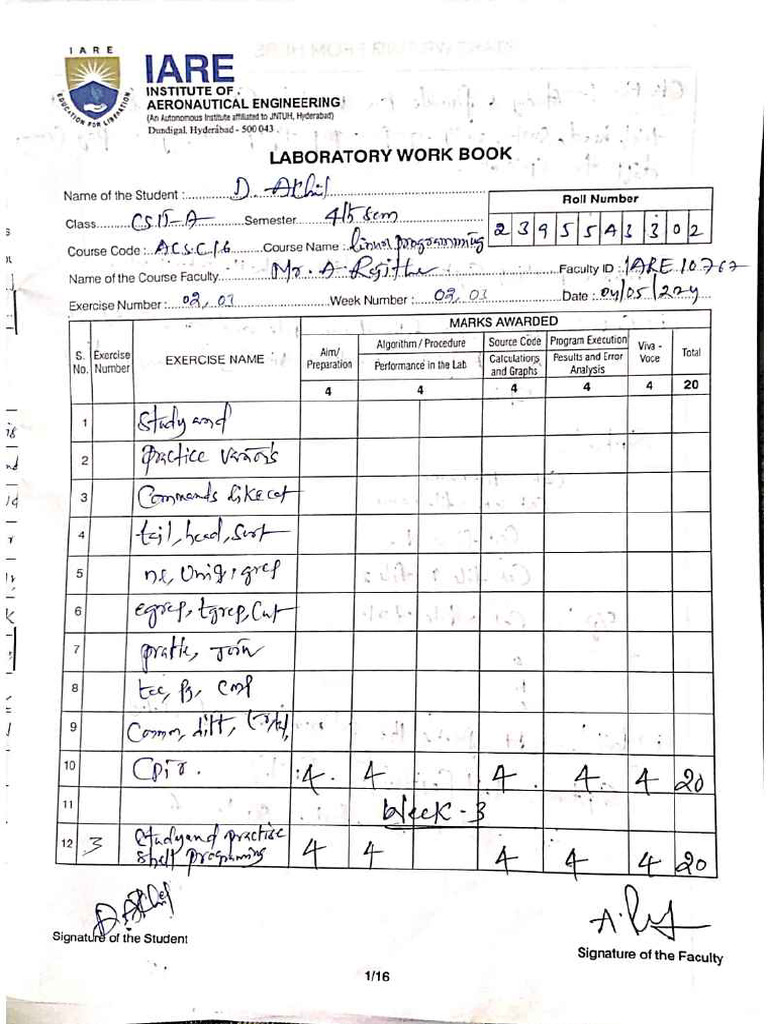 IARE
IARE
EDUCATION FOR LIBERATION
INSTITUTE OF
AERONAUTICAL ENGINEERING
(An Autonomous Institute affiliated to JNTUH, Hyderabad)
Dundigal, Hyderabad - 500 043
LABORATORY WORK BOOK
Name of the Student : D. Akhil
Roll Number
Class CSIT-A Semester 4/5 sem
2 3 9 5 5 A 3 3 0 2
Course Code : ACSC16 Course Name : linux programming
Name of the Course Faculty Mr. A. Faculty ID : IARE 10767
Exercise Number : 02, 03 Week Number : 02, 03 Date :
MARKS AWARDED
S. No. Exercise Number EXERCISE NAME Aim/ Preparation Algorithm / Procedure Source Code Program Execution Viva - Voce Total
Performance in the Lab Calculations and Graphs Results and Error Analysis
4 4 4 4 4 20
1 Study and
2 practice various
3 Commands like cat
4 tail, head, sort
5 nl, Uniq, grep
6 egrep, fgrep, Cut
7 Join
8 tee, pg, cmp
9 Comm, diff,
10 4 4 4 4 4 20
11 Week - 3
12 3 Study and practice Shell programing 4 4 4 4 4 20
D. Akhil
Signature of the Student
Signature of the Faculty
1/16